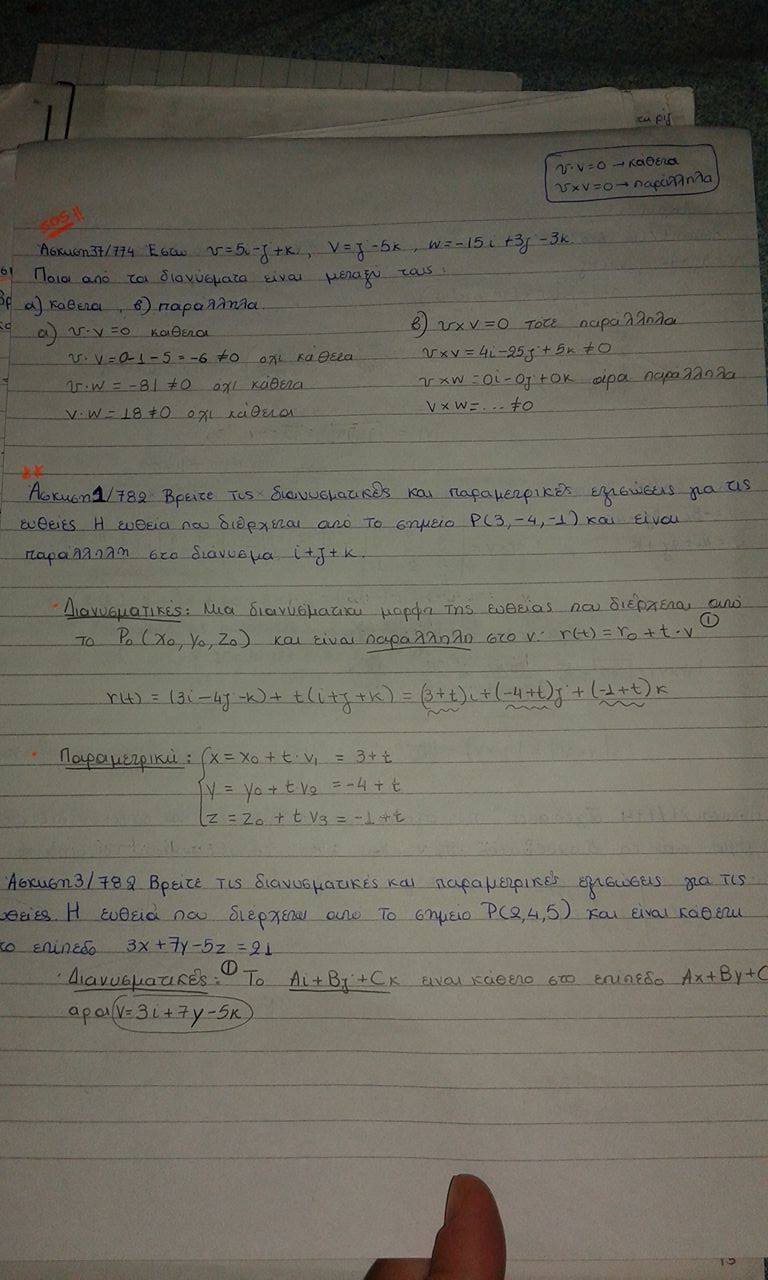 υ·v=0 → κάθετα
υ×v=0 → παράλληλα
SOS!!
Άσκηση 37/774 Έστω υ=5i-j+k, v=j-5k, w=-15i+3j-3k
Ποια από τα διανύσματα είναι μεταξύ τους:
α) κάθετα, β) παράλληλα.
α) υ·v=0 κάθετα
υ·v=0-1-5=-6≠0 οχι κάθετα
υ·w=-81≠0 οχι κάθετα
v·w=18≠0 οχι κάθετα
β) υ×v=0 τότε παράλληλα
υ×v=4i-25j+5k≠0
υ×w=0i-0j+0k άρα παράλληλα
v×w=...≠0
Άσκηση 1/782 Βρείτε τις διανυσματικές και παραμετρικές εξισώσεις για τις
ευθείες Η ευθεία που διέρχεται από το σημείο P(3,-4,-1) και είναι
παράλληλη στο διάνυσμα i+j+k.
· Διανυσματικές: Μια διανυσματική μορφή της ευθείας που διέρχεται από
το P₀(x₀,y₀,z₀) και είναι παράλληλη στο v: r(t)=r₀+t·v ①
r(t)=(3i-4j-k)+t(i+j+k)=(3+t)i+(-4+t)j+(-1+t)k
· Παραμετρική: { x=x₀+t·v₁ = 3+t
y = y₀+tv₂ = -4+t
z=z₀+tv₃ = -1+t
Άσκηση 3/782 Βρείτε τις διανυσματικές και παραμετρικές εξισώσεις για τις
υθείες Η ευθεία που διέρχεται από το σημείο P(2,4,5) και είναι κάθετη
το επίπεδο 3x+7y-5z=21
· Διανυσματικές: ① Το Ai+Bj+Ck είναι κάθετο στο επίπεδο Ax+By+C
αρα v=3i+7y-5k